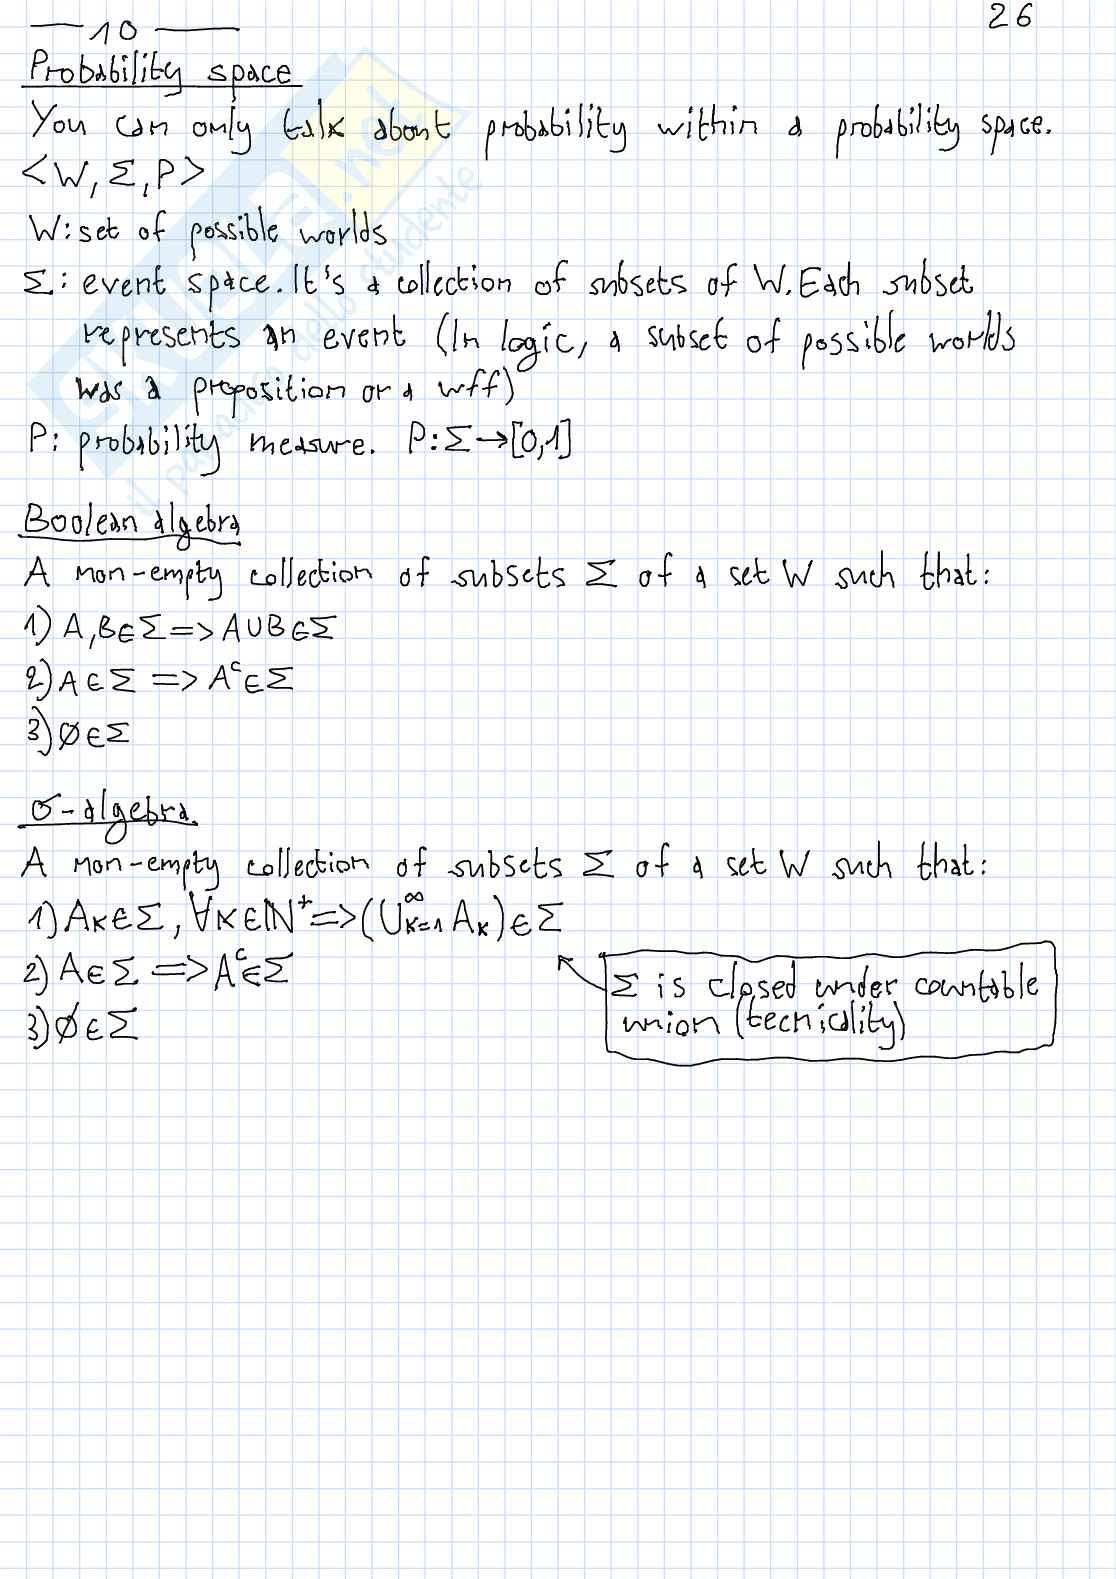 26
10
Probability space
You can only talk about probability within a probability space.
<W, Σ, P>
W: set of possible worlds
Σ: event space. It's a collection of subsets of W. Each subset
represents an event (In logic, a subset of possible worlds
was a proposition or a wff)
P: probability measure. P: Σ → [0,1]
Boolean algebra
A non-empty collection of subsets Σ of a set W such that:
1) A, B ∈ Σ => A ∪ B ∈ Σ
2) A ∈ Σ => Aᶜ ∈ Σ
3) ∅ ∈ Σ
σ-algebra.
A non-empty collection of subsets Σ of a set W such that:
1) Aₖ ∈ Σ, ∀k ∈ ℕ⁺ => (∪ₖ₌₁^∞ Aₖ) ∈ Σ
2) A ∈ Σ => Aᶜ ∈ Σ
3) ∅ ∈ Σ
Σ is closed under countable
union (tecnicality)
SKUOLA.net
il paradiso dello studente